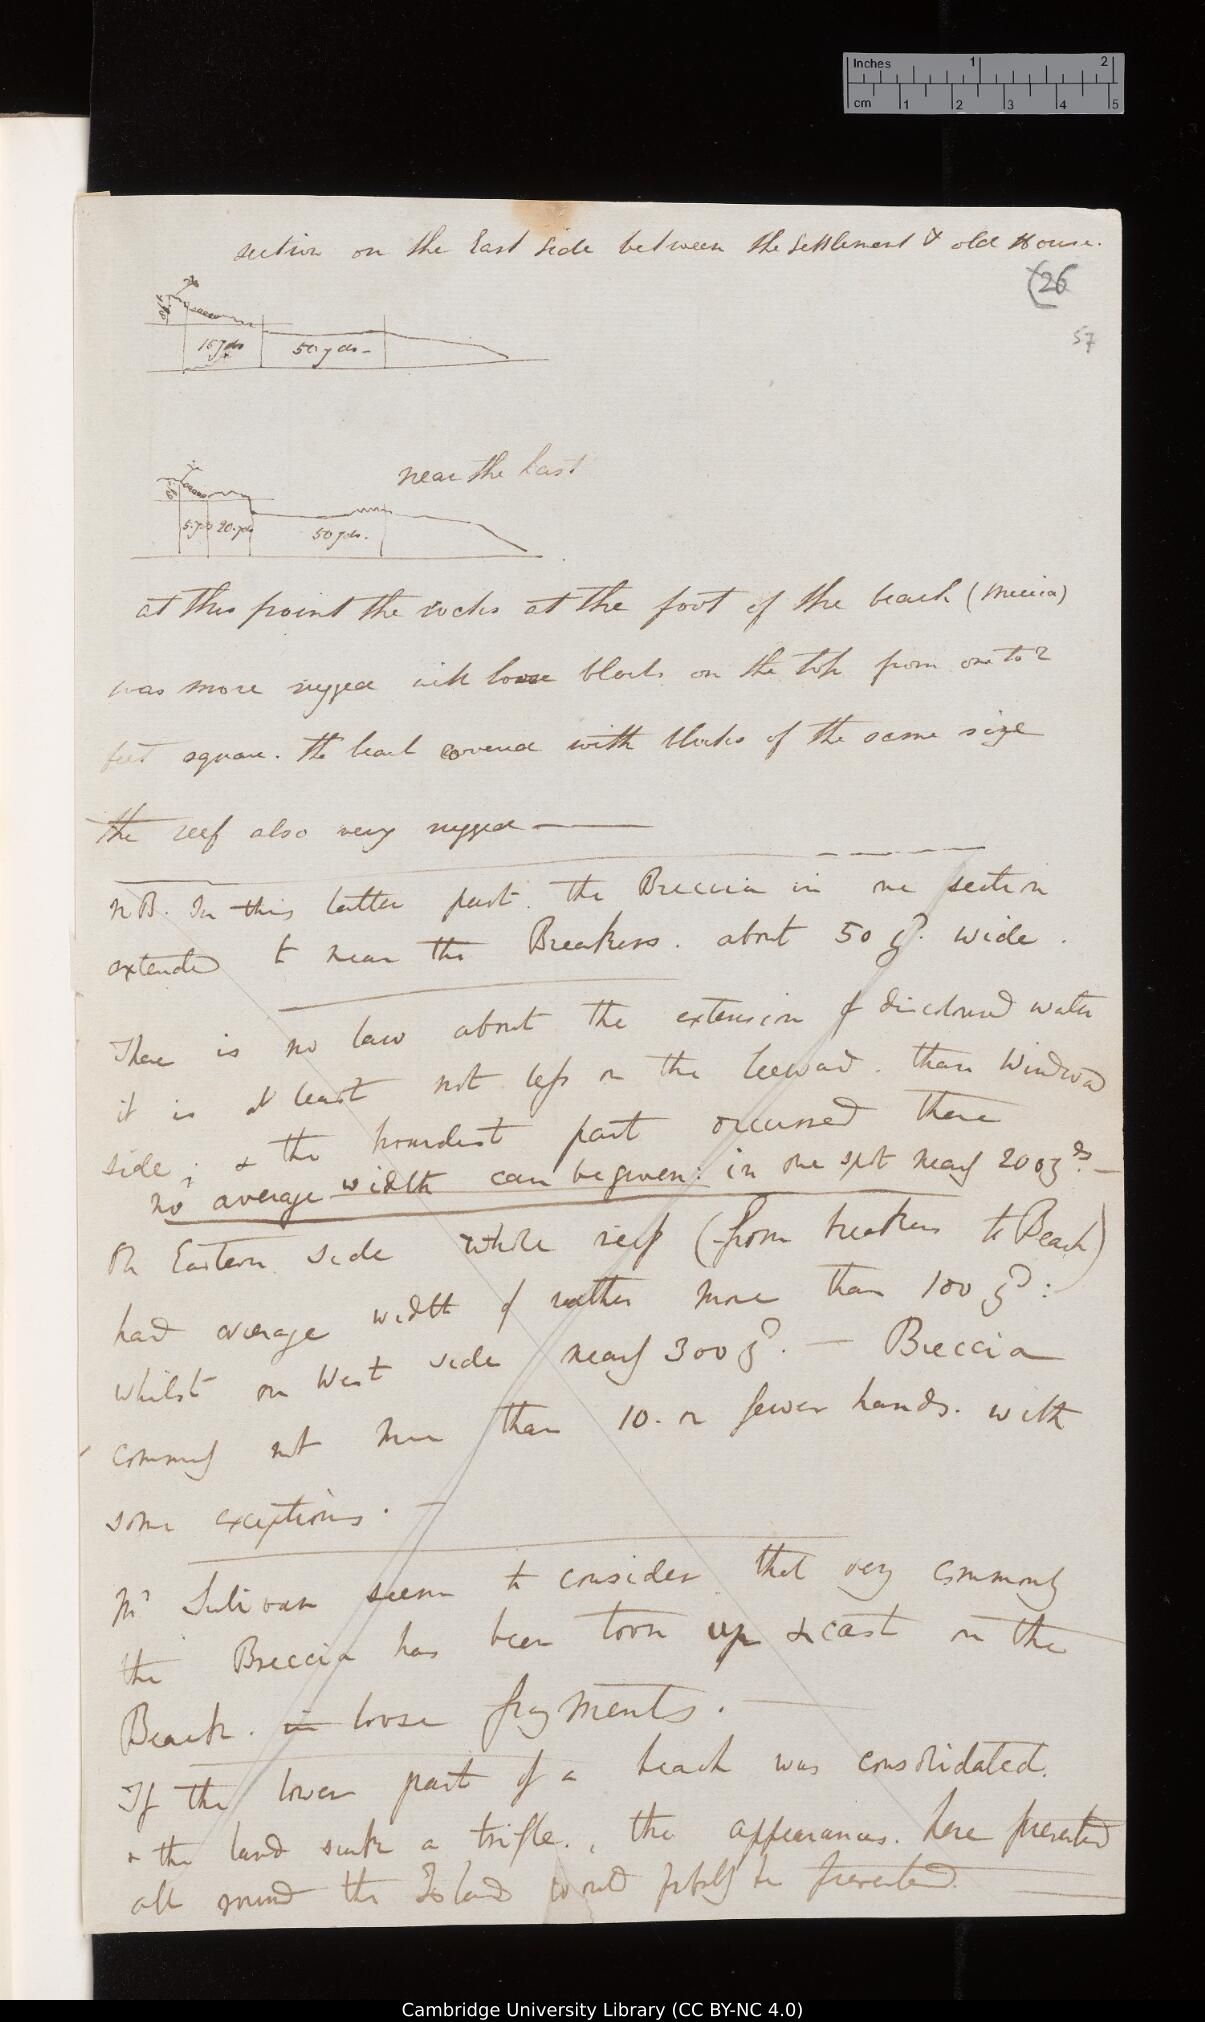 Inches 1 2
cm 1 2 3 4 5
section on the East Side between the Settlement & old House.
(26
57
15 yds 50 yds-
near the last
5 yds 20 yds 50 yds.
at this point the rocks at the foot of the beach
was more rugged with loose blocks on the top from one to 2
feet square. the beach covered with blocks of the same size
the reef also very rugged —
NB. In this latter part. the Breccia in one section
extended to near the Breakers. about 50 yd. wide.
There is no law about the extension of discoloured water
it is at least not less on the leeward. than Windward
side; & the broardest part occurred there
no average width can be given: in one spot nearly 200 yds.—
On Eastern side whole reef (from breakers to Beach)
had average width of rather more than 100 yd:
whilst on West side nearly 300 yd. — Breccia
commonly not more than 10. or fewer with
some exceptions. —
Mr Sulivan seem to consider that very commonly
the Breccia has been torn up & cast on the
Beach. in loose fragments. —
If the lower part of a beach was consolidated.
& the land sunk a trifle., the appearances. here presented
all round the Island would probably be presented.
Cambridge University Library (CC BY-NC 4.0)